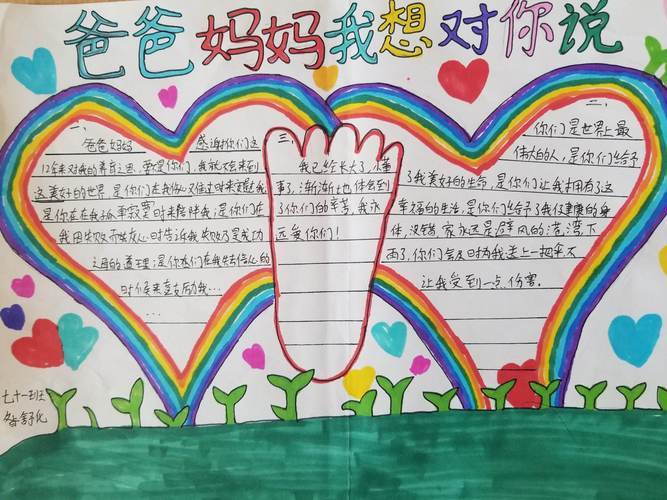 爸爸妈妈我想对你说
一、
爸爸妈妈 感谢你们这
12年来对我的养育之恩,要是你们,我就不会来到
这美好的世界,是你们在我伤心难过时来安慰我
是你在在我孤单寂寞时来陪伴我;是你们在
我因失败而灰心时告诉我失败乃是成功
之母的道理;是你们在我失去信心的
时候来鼓励我…
…
三、
我已经长大了,懂
事了,渐渐也体会到
了你们的辛苦,我永
远爱你们!
二、
你们是世界上最
伟大的人,是你们给予
了我美好的生命,是你们让我拥有了这
幸福的生活,是你们给予了我健康的身
体,没错,家永远是避风的港湾,下
雨了,你们会及时为我送上一把伞,不
让我受到一点伤害。
七十一班